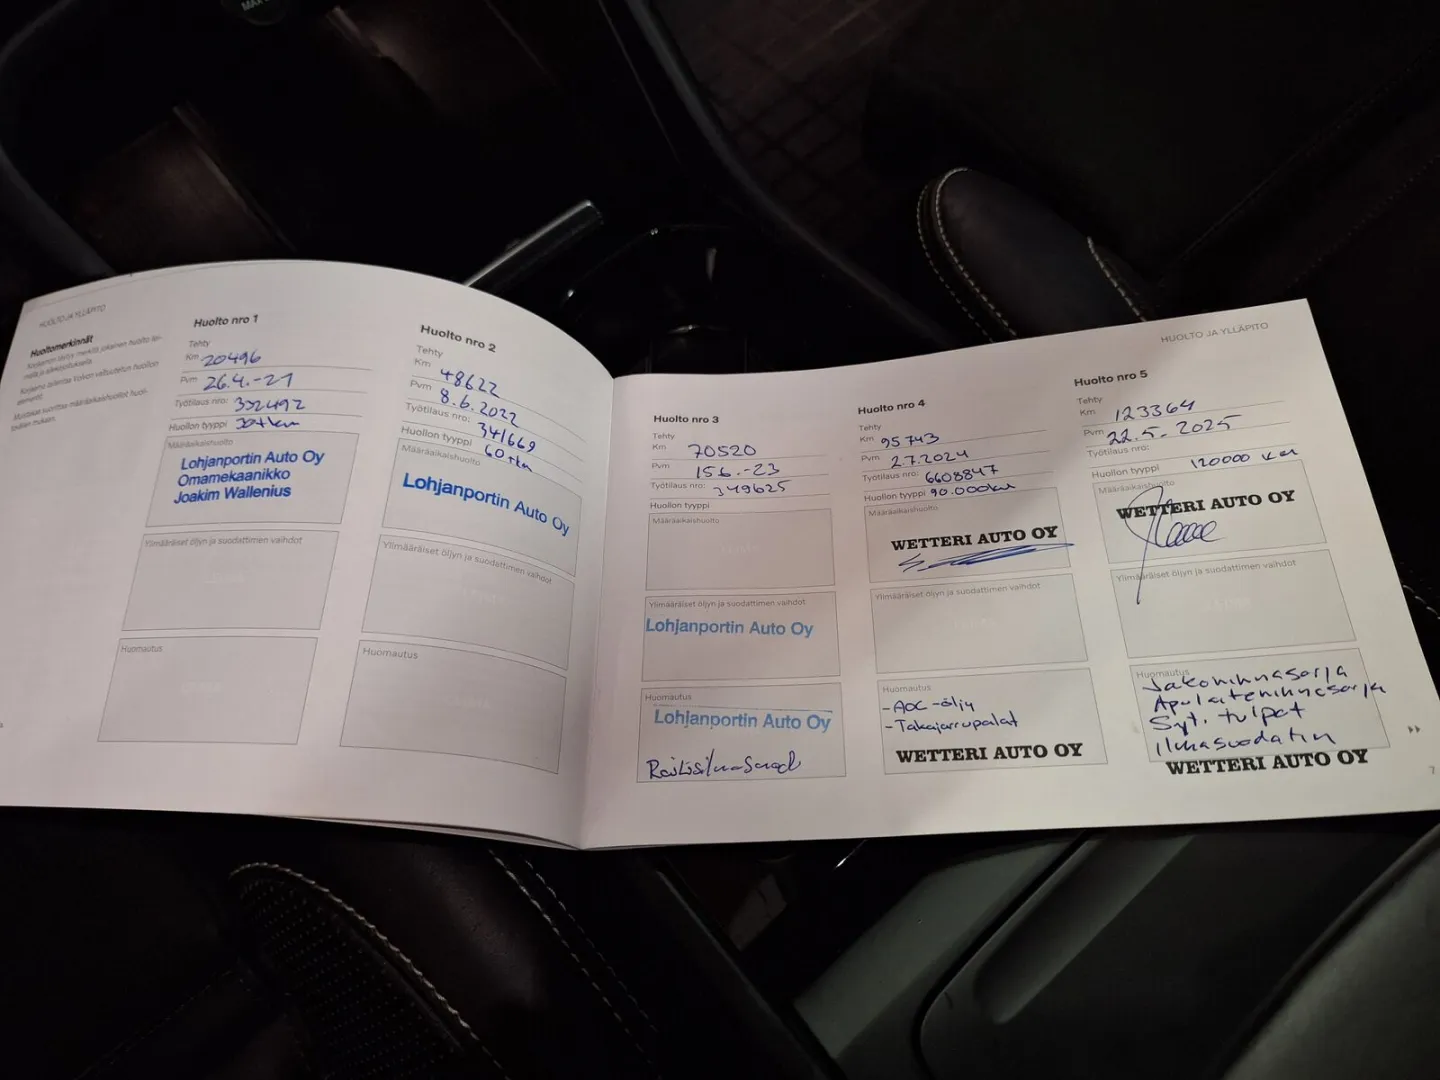 HUOLTO JA YLLÄPITO
Huoltomerkinnät
Huolto nro 1
Tehty
Km 20496
Pvm 26.4.-21
Työtilaus nro: 332492
Huollon tyyppi 30tkm
Määräaikaishuolto
Lohjanportin Auto Oy
Omamekaanikko
Joakim Wallenius
Ylimääräiset öljyn ja suodattimen vaihdot
Huomautus
Huolto nro 2
Tehty
Km 48622
Pvm 8.6.2022
Työtilaus nro: 341669
Huollon tyyppi 60tkm
Määräaikaishuolto
Lohjanportin Auto Oy
Ylimääräiset öljyn ja suodattimen vaihdot
Huomautus
Huolto nro 3
Tehty
Km 70520
Pvm 156.-23
Työtilaus nro: 349625
Huollon tyyppi
Määräaikaishuolto
Ylimääräiset öljyn ja suodattimen vaihdot
Lohjanportin Auto Oy
Huomautus
Lohjanportin Auto Oy
Huolto nro 4
Tehty
Km 95743
Pvm 2.7.2024
Työtilaus nro: 6608847
Huollon tyyppi 90.000km
Määräaikaishuolto
WETTERI AUTO OY
Ylimääräiset öljyn ja suodattimen vaihdot
Huomautus
-AOC-öljy
-Takajarrupalat
WETTERI AUTO OY
HUOLTO JA YLLÄPITO
Huolto nro 5
Tehty
Km 123364
Pvm 22.5.2025
Työtilaus nro:
Huollon tyyppi 120000 km
Määräaikaishuolto
WETTERI AUTO OY
Ylimääräiset öljyn ja suodattimen vaihdot
Huomautus
Jakohihnasarja
Apulaitehihnasarja
Syt. tulpat
ilmasuodatin
WETTERI AUTO OY
7